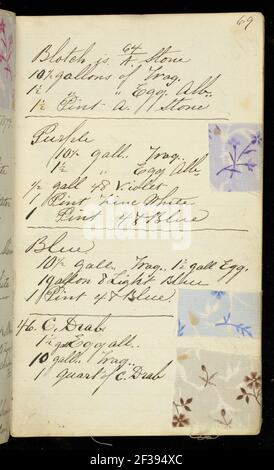 69
Blotch is 64/A Stone
10½ gallons of Trag.
1½ " " Egg Alb.
1½ Pint A. Stone
Purple
10½ gall. Trag.
1½ " Egg Alb
½ gall 48 Violet
1 Pint Zinc White
1 Pint 48 Blue
Blue
10½ gall. Trag. 1½ gall Egg.
1 gallon 8 Light Blue
1 Pint 48 Blue
C. Drab
1½ gall Egg all.
10 gall. Trag.
1 quart of C. Drab
alamy
Image ID: 2F394XC
www.alamy.com